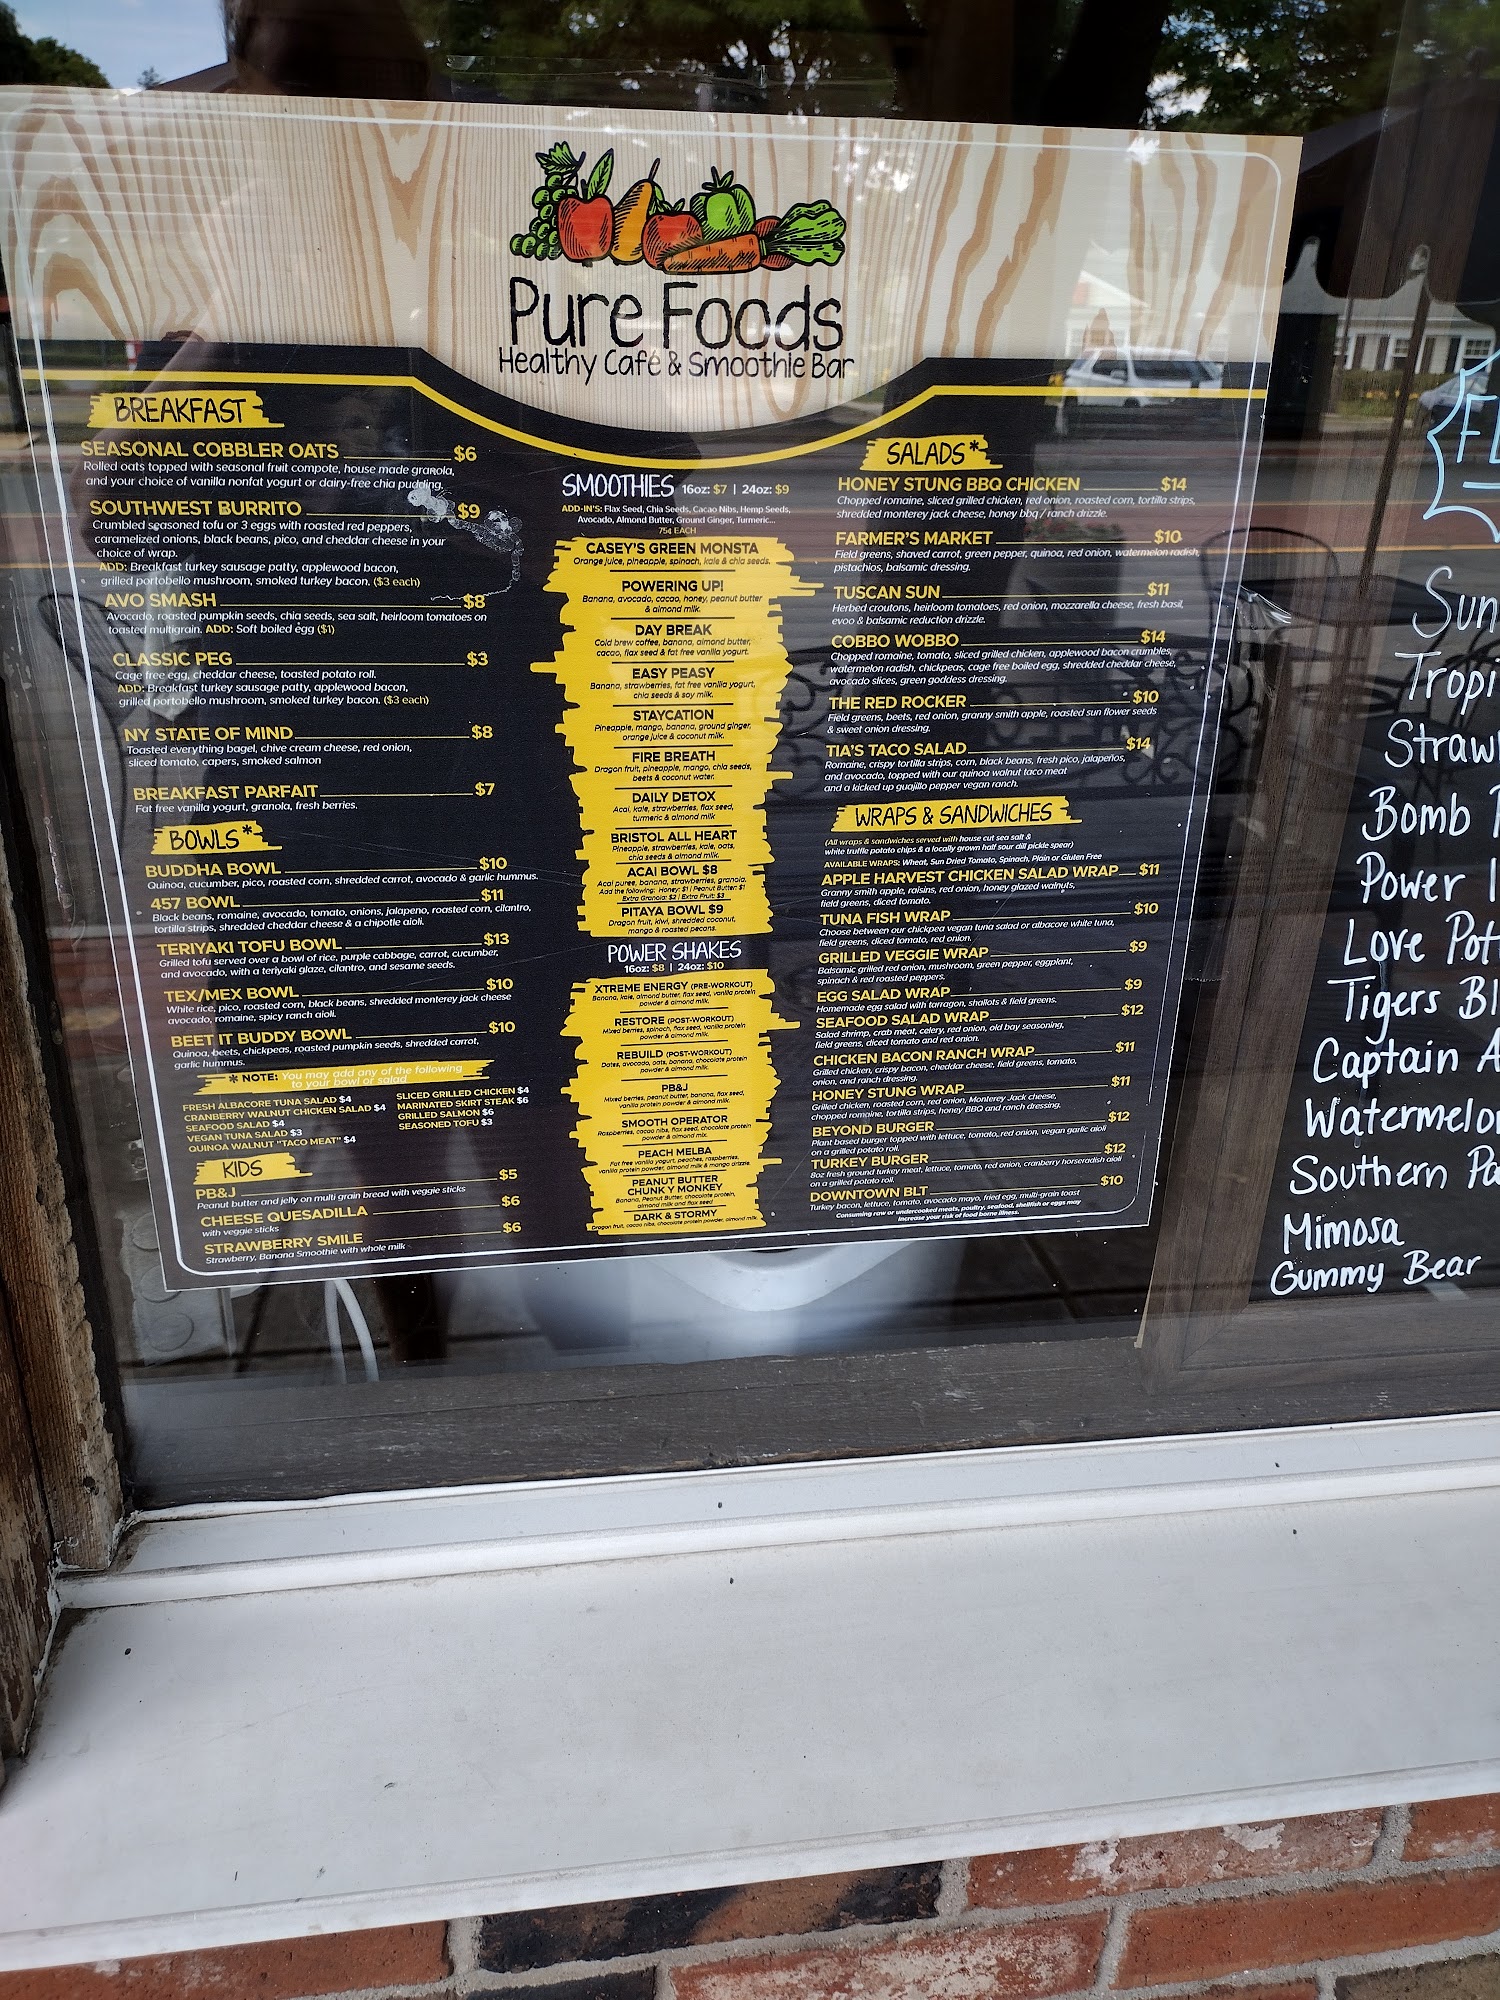 Pure Foods
Healthy Café & Smoothie Bar
BREAKFAST
SEASONAL COBBLER OATS $6
Rolled oats topped with seasonal fruit compote, house made granola,
and your choice of vanilla nonfat yogurt or dairy-free chia pudding.
SOUTHWEST BURRITO $9
Crumbled seasoned tofu or 3 eggs with roasted red peppers,
caramelized onions, black beans, pico, and cheddar cheese in your
choice of wrap.
ADD: Breakfast turkey sausage patty, applewood bacon,
grilled portobello mushroom, smoked turkey bacon. ($3 each)
AVO SMASH $8
Avocado, roasted pumpkin seeds, chia seeds, sea salt, heirloom tomatoes on
toasted multigrain. ADD: Soft boiled egg ($1)
CLASSIC PEG $3
Cage free egg, cheddar cheese, toasted potato roll.
ADD: Breakfast turkey sausage patty, applewood bacon,
grilled portobello mushroom, smoked turkey bacon. ($3 each)
NY STATE OF MIND $8
Toasted everything bagel, chive cream cheese, red onion,
sliced tomato, capers, smoked salmon
BREAKFAST PARFAIT $7
Fat free vanilla yogurt, granola, fresh berries.
BOWLS*
BUDDHA BOWL $10
Quinoa, cucumber, pico, roasted corn, shredded carrot, avocado & garlic hummus.
457 BOWL $11
Black beans, romaine, avocado, tomato, onions, jalapeno, roasted corn, cilantro,
tortilla strips, shredded cheddar cheese & a chipotle aioli.
TERIYAKI TOFU BOWL $13
Grilled tofu served over a bowl of rice, purple cabbage, carrot, cucumber,
and avocado, with a teriyaki glaze, cilantro, and sesame seeds.
TEX/MEX BOWL $10
White rice, pico, roasted corn, black beans, shredded monterey jack cheese
avocado, romaine, spicy ranch aioli.
BEET IT BUDDY BOWL $10
Quinoa, beets, chickpeas, roasted pumpkin seeds, shredded carrot,
garlic hummus.
* NOTE: You may add any of the following
to your bowl or salad
FRESH ALBACORE TUNA SALAD $4
CRANBERRY WALNUT CHICKEN SALAD $4
SEAFOOD SALAD $4
VEGAN TUNA SALAD $3
QUINOA WALNUT "TACO MEAT" $4
SLICED GRILLED CHICKEN $4
MARINATED SKIRT STEAK $6
GRILLED SALMON $6
SEASONED TOFU $3
KIDS
PB&J $5
Peanut butter and jelly on multi grain bread with veggie sticks
CHEESE QUESADILLA $6
with veggie sticks
STRAWBERRY SMILE $6
Strawberry, Banana Smoothie with whole milk
SMOOTHIES 16oz: $7 | 24oz: $9
ADD-IN'S: Flax Seed, Chia Seeds, Cacao Nibs, Hemp Seeds,
Avocado, Almond Butter, Ground Ginger, Turmeric...
75¢ EACH
CASEY'S GREEN MONSTA
Orange juice, pineapple, spinach, kale & chia seeds.
POWERING UP!
Banana, avocado, cacao, honey, peanut butter
& almond milk.
DAY BREAK
Cold brew coffee, banana, almond butter,
cacao, flax seed & fat free vanilla yogurt.
EASY PEASY
Banana, strawberries, fat free vanilla yogurt,
chia seeds & soy milk.
STAYCATION
Pineapple, mango, banana, ground ginger,
orange juice & coconut milk.
FIRE BREATH
Dragon fruit, pineapple, mango, chia seeds,
beets & coconut water.
DAILY DETOX
Acai, kale, strawberries, flax seed,
turmeric & almond milk
BRISTOL ALL HEART
Pineapple, strawberries, kale, oats,
chia seeds & almond milk.
ACAI BOWL $8
Acai puree, banana, strawberries, granola.
Add the following: Honey: $1 | Peanut Butter: $1
Extra Granola: $2 | Extra Fruit: $3
PITAYA BOWL $9
Dragon fruit, kiwi, shredded coconut,
mango & roasted pecans.
POWER SHAKES
16oz: $8 | 24oz: $10
XTREME ENERGY (PRE-WORKOUT)
Banana, kale, almond butter, flax seed, vanilla protein
powder & almond milk.
RESTORE (POST-WORKOUT)
Mixed berries, spinach, flax seed, vanilla protein
powder & almond milk.
REBUILD (POST-WORKOUT)
Dates, avocado, oats, banana, chocolate protein
powder & almond milk.
PB&J
Mixed berries, peanut butter, banana, flax seed,
vanilla protein powder & almond milk.
SMOOTH OPERATOR
Raspberries, cacao nibs, flax seed, chocolate protein
powder & almond mix.
PEACH MELBA
Fat free vanilla yogurt, peaches, raspberries,
vanilla protein powder, almond milk & mango drizzle.
PEANUT BUTTER
CHUNK Y MONKEY
Banana, Peanut Butter, chocolate protein,
almond milk and flax seed
DARK & STORMY
Dragon fruit, cacao nibs, chocolate protein powder, almond milk
SALADS*
HONEY STUNG BBQ CHICKEN $14
Chopped romaine, sliced grilled chicken, red onion, roasted corn, tortilla strips,
shredded monterey jack cheese, honey bbq / ranch drizzle.
FARMER'S MARKET $10
Field greens, shaved carrot, green pepper, quinoa, red onion, watermelon radish,
pistachios, balsamic dressing.
TUSCAN SUN $11
Herbed croutons, heirloom tomatoes, red onion, mozzarella cheese, fresh basil,
evoo & balsamic reduction drizzle.
COBBO WOBBO $14
Chopped romaine, tomato, sliced grilled chicken, applewood bacon crumbles,
watermelon radish, chickpeas, cage free boiled egg, shredded cheddar cheese,
avocado slices, green goddess dressing.
THE RED ROCKER $10
Field greens, beets, red onion, granny smith apple, roasted sun flower seeds
& sweet onion dressing.
TIA'S TACO SALAD $14
Romaine, crispy tortilla strips, corn, black beans, fresh pico, jalapeños,
and avocado, topped with our quinoa walnut taco meat
and a kicked up guajillo pepper vegan ranch.
WRAPS & SANDWICHES
(All wraps & sandwiches served with house cut sea salt &
white truffle potato chips & a locally grown half sour dill pickle spear)
AVAILABLE WRAPS: Wheat, Sun Dried Tomato, Spinach, Plain or Gluten Free
APPLE HARVEST CHICKEN SALAD WRAP $11
Granny smith apple, raisins, red onion, honey glazed walnuts,
field greens, diced tomato.
TUNA FISH WRAP $10
Choose between our chickpea vegan tuna salad or albacore white tuna,
field greens, diced tomato, red onion.
GRILLED VEGGIE WRAP $9
Balsamic grilled red onion, mushroom, green pepper, eggplant,
spinach & red roasted peppers.
EGG SALAD WRAP $9
Homemade egg salad with tarragon, shallots & field greens.
SEAFOOD SALAD WRAP $12
Salad shrimp, crab meat, celery, red onion, old bay seasoning,
field greens, diced tomato and red onion.
CHICKEN BACON RANCH WRAP $11
Grilled chicken, crispy bacon, cheddar cheese, field greens, tomato,
onion, and ranch dressing.
HONEY STUNG WRAP $11
Grilled chicken, roasted corn, red onion, Monterey Jack cheese,
chopped romaine, tortilla strips, honey BBQ and ranch dressing.
BEYOND BURGER $12
Plant based burger topped with lettuce, tomato, red onion, vegan garlic aioli
on a grilled potato roll.
TURKEY BURGER $12
8oz fresh ground turkey meat, lettuce, tomato, red onion, cranberry horseradish aioli
on a grilled potato roll.
DOWNTOWN BLT $10
Turkey bacon, lettuce, tomato, avocado mayo, fried egg, multi-grain toast
Consuming raw or undercooked meats, poultry, seafood, shellfish or eggs may
increase your risk of food borne illness.
FL
Sun
Tropi
Straw
Bomb
Power
Love Pot
Tigers Bl
Captain A
Watermelon
Southern Pa
Mimosa
Gummy Bear